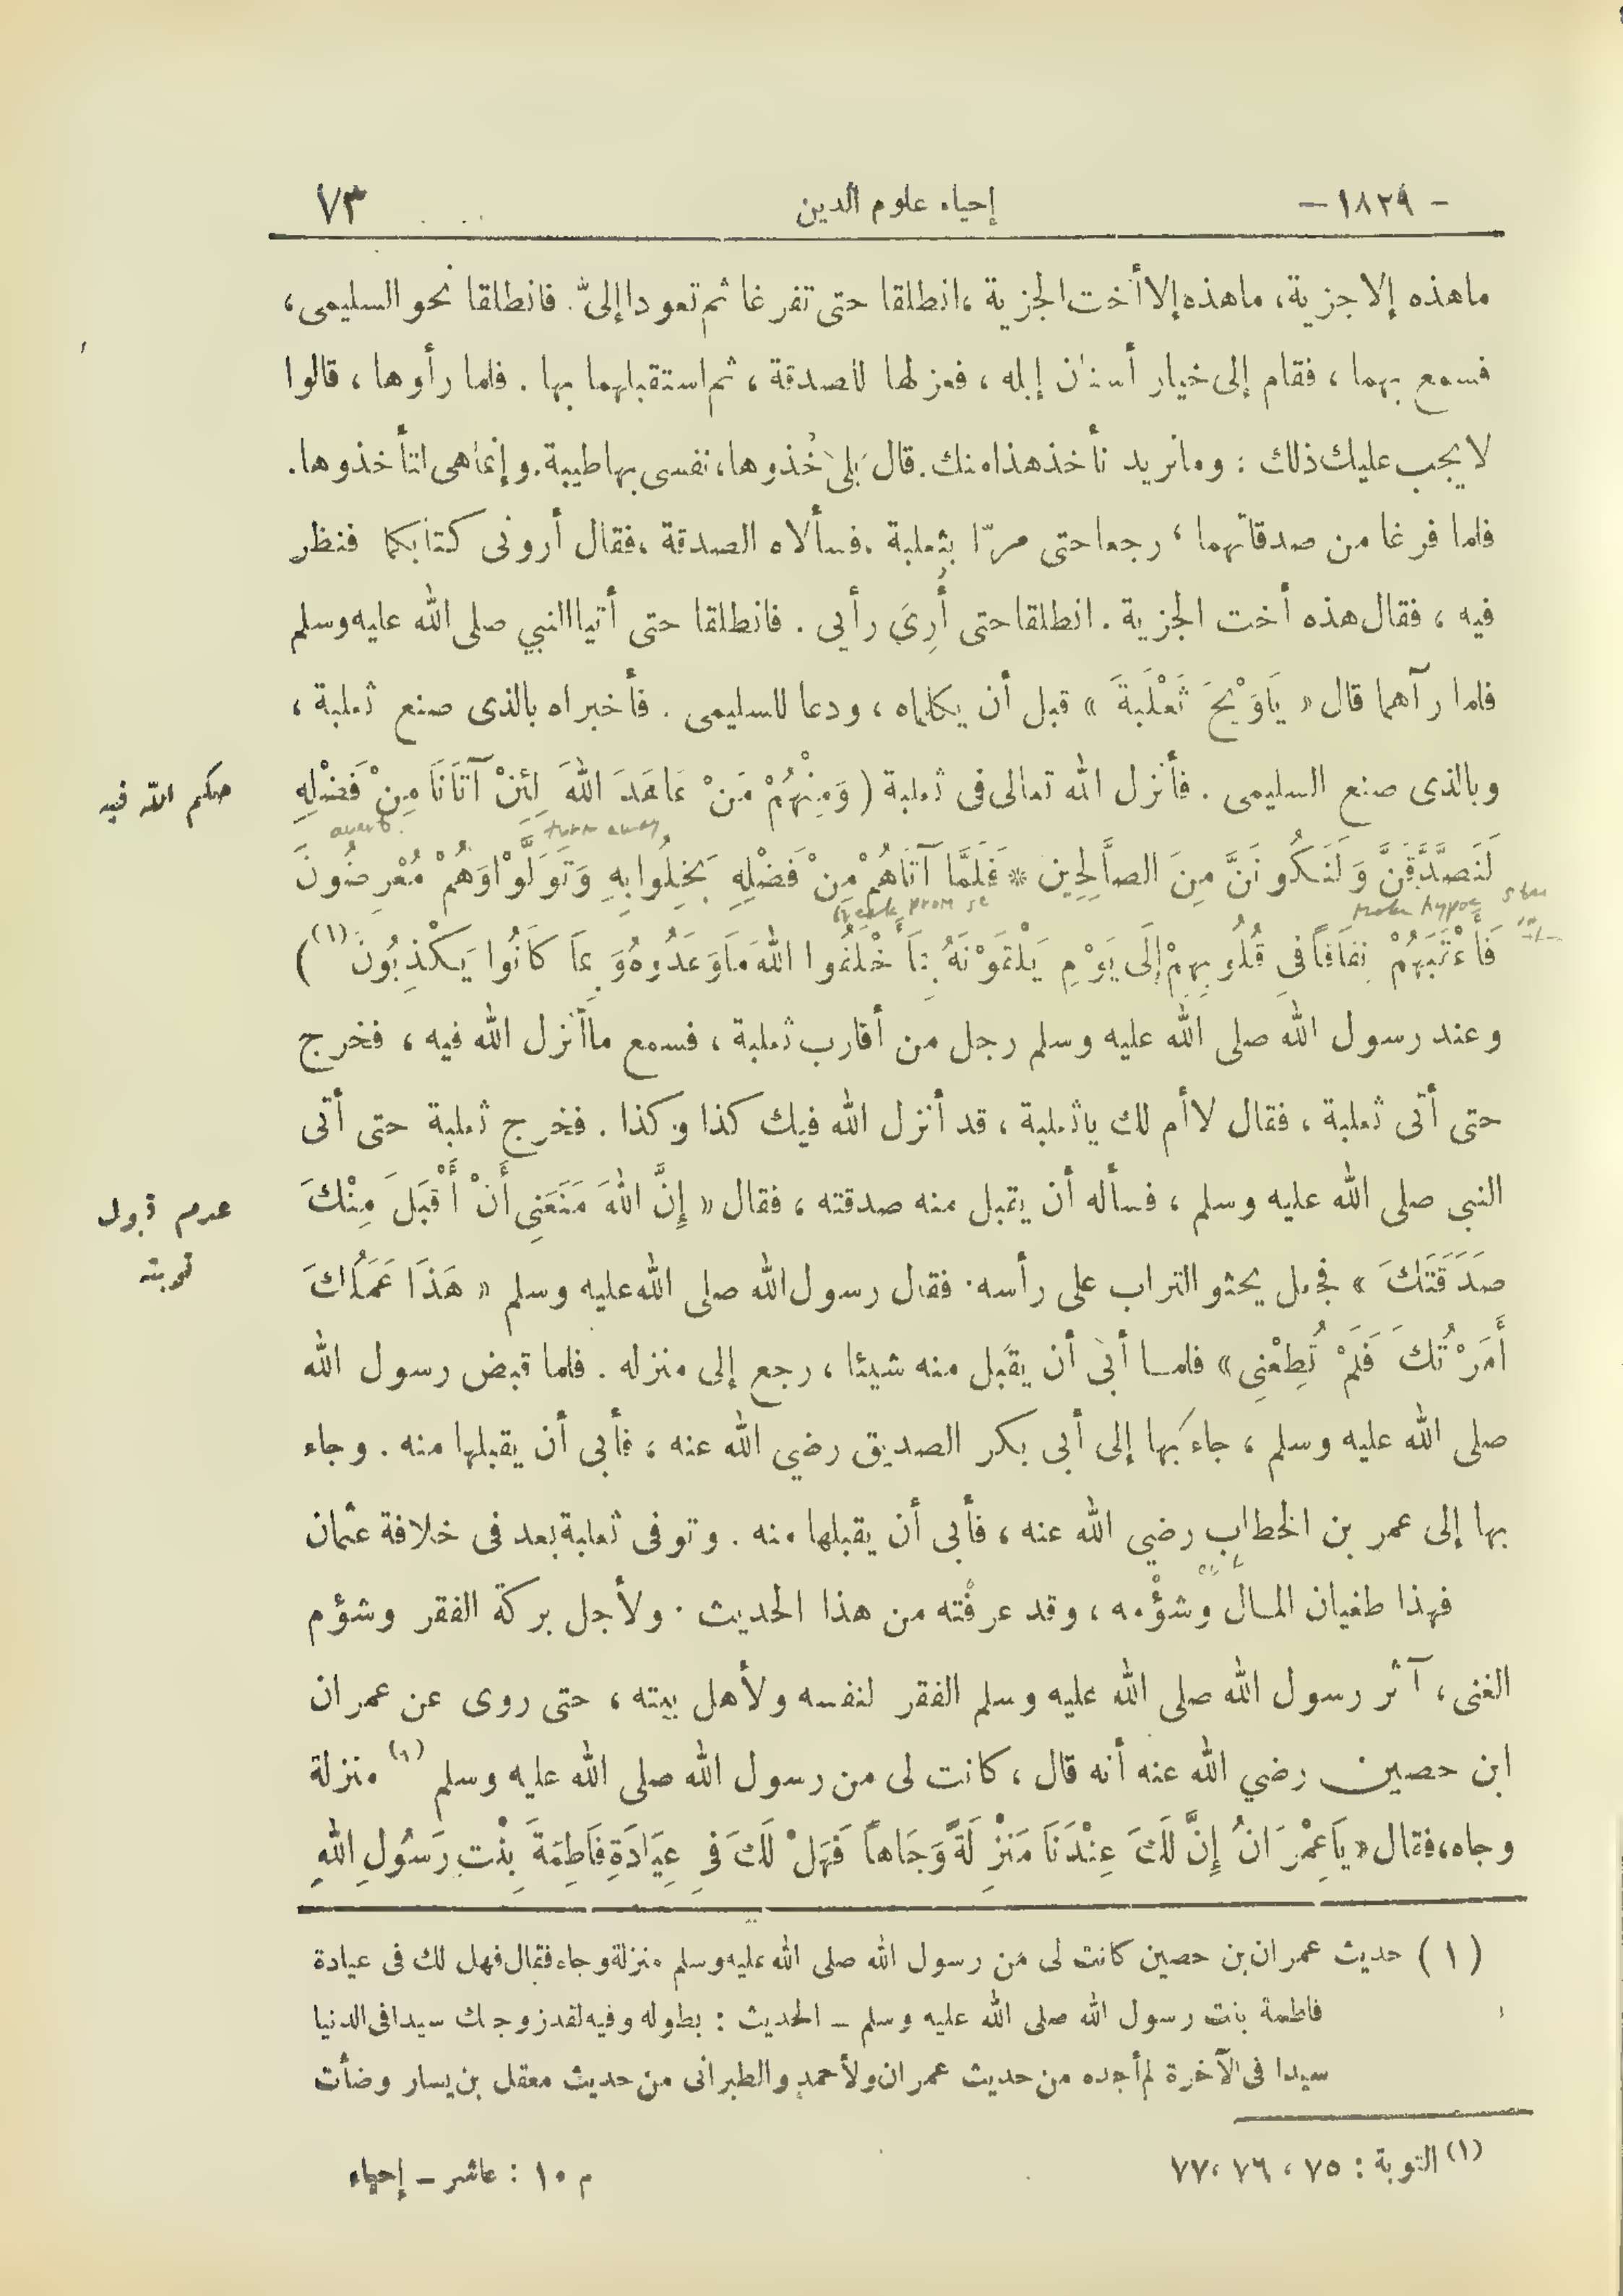 - ١٨٢٩ - إحياء علوم الدين ٧٣
ما هذه إلا جزية، ما هذه إلا أخت الجزية ، انطلقا حتى تفرغا ثم تعودا إلىّ . فانطلقا نحو السليمى ،
فسمع بهما ، فقام إلى خيار أسنان إبله ، فعزلها للصدقة ، ثم استقبلهما بها . فلما رأوها ، قالوا
لا يجب عليك ذلك : وما نريد نأخذ هذا منك . قال بَلَى خُذوها ، نفسى بها طيبة . وإنما هى لتأخذوها .
فلما فرغا من صدقاتهما ، رجعا حتى مرّا بثعلبة . فسألاه الصدقة ، فقال أرونى كتابكما فنظر
فيه ، فقال هذه أخت الجزية . انطلقا حتى أُرِىَ رأيى . فانطلقا حتى أتيا النبي صلى الله عليه وسلم
فلما رآهما قال « يَاوَيْحَ ثَعْلَبَةَ » قبل أن يكلماه ، ودعا للسليمى . فأخبراه بالذى صنع ثعلبة ،
وبالذى صنع السليمى . فأنزل الله تعالى فى ثعلبة ( وَمِنْهُمْ مَنْ عَاهَدَ اللهَ لَئِنْ آتَانَا مِنْ فَضْلِهِ
حكم الله فيه
avert. turn away
لَنَصَّدَّقَنَّ وَلَنَكُونَنَّ مِنَ الصَّالِحِينَ * فَلَمَّا آتَاهُمْ مِنْ فَضْلِهِ بَخِلُوا بِهِ وَتَوَلَّوْا وَهُمْ مُعْرِضُونَ
break promise
فَأَعْقَبَهُمْ نِفَاقًا فِى قُلُوبِهِمْ إِلَى يَوْمِ يَلْقَوْنَهُ بِمَا أَخْلَفُوا اللهَ مَا وَعَدُوهُ وَبِمَا كَانُوا يَكْذِبُونَ (١) )
وعند رسول الله صلى الله عليه وسلم رجل من أقارب ثعلبة ، فسمع ما أنزل الله فيه ، فخرج
حتى أتى ثعلبة ، فقال لا أم لك يا ثعلبة ، قد أنزل الله فيك كذا وكذا . فخرج ثعلبة حتى أتى
النبى صلى الله عليه وسلم ، فسأله أن يقبل منه صدقته ، فقال « إِنَّ اللهَ مَنَعَنِى أَنْ أَقْبَلَ مِنْكَ
عدم قبول
توبته
صَدَقَتَكَ » فجعل يحثو التراب على رأسه . فقال رسول الله صلى الله عليه وسلم « هَذَا عَمَلُكَ
أَمَرْتُكَ فَلَمْ تُطِعْنِى » فلما أبى أن يقبل منه شيئا ، رجع إلى منزله . فلما قبض رسول الله
صلى الله عليه وسلم ، جاء بها إلى أبى بكر الصديق رضي الله عنه ، فأبى أن يقبلها منه . وجاء
بها إلى عمر بن الخطاب رضي الله عنه ، فأبى أن يقبلها منه . وتوفى ثعلبة بعد فى خلافة عثمان
فهذا طغيان المال وشؤمه ، وقد عرفته من هذا الحديث . ولأجل بركة الفقر وشؤم
الغنى ، آثر رسول الله صلى الله عليه وسلم الفقر لنفسه ولأهل بيته ، حتى روى عن عمران
ابن حصين رضي الله عنه أنه قال ، كانت لى من رسول الله صلى الله عليه وسلم (١) منزلة
وجاه ، فقال « يَا عِمْرَانُ إِنَّ لَكَ عِنْدَنَا مَنْزِلَةً وَجَاهًا فَهَلْ لَكَ فِى عِيَادَةِ فَاطِمَةَ بِنْتِ رَسُولِ اللهِ
(١) حديث عمران بن حصين كانت لى من رسول الله صلى الله عليه وسلم منزلة وجاء فقال فهل لك فى عيادة
فاطمة بنت رسول الله صلى الله عليه وسلم - الحديث : بطوله وفيه لقد زوجك سيدا فى الدنيا
سيدا فى الآخرة لم أجده من حديث عمران ولأحمد والطبرانى من حديث معقل بن يسار وضأت
(١) التوبة : ٧٥ ، ٧٦ ،٧٧
م ١٠ : عاشر - إحياء